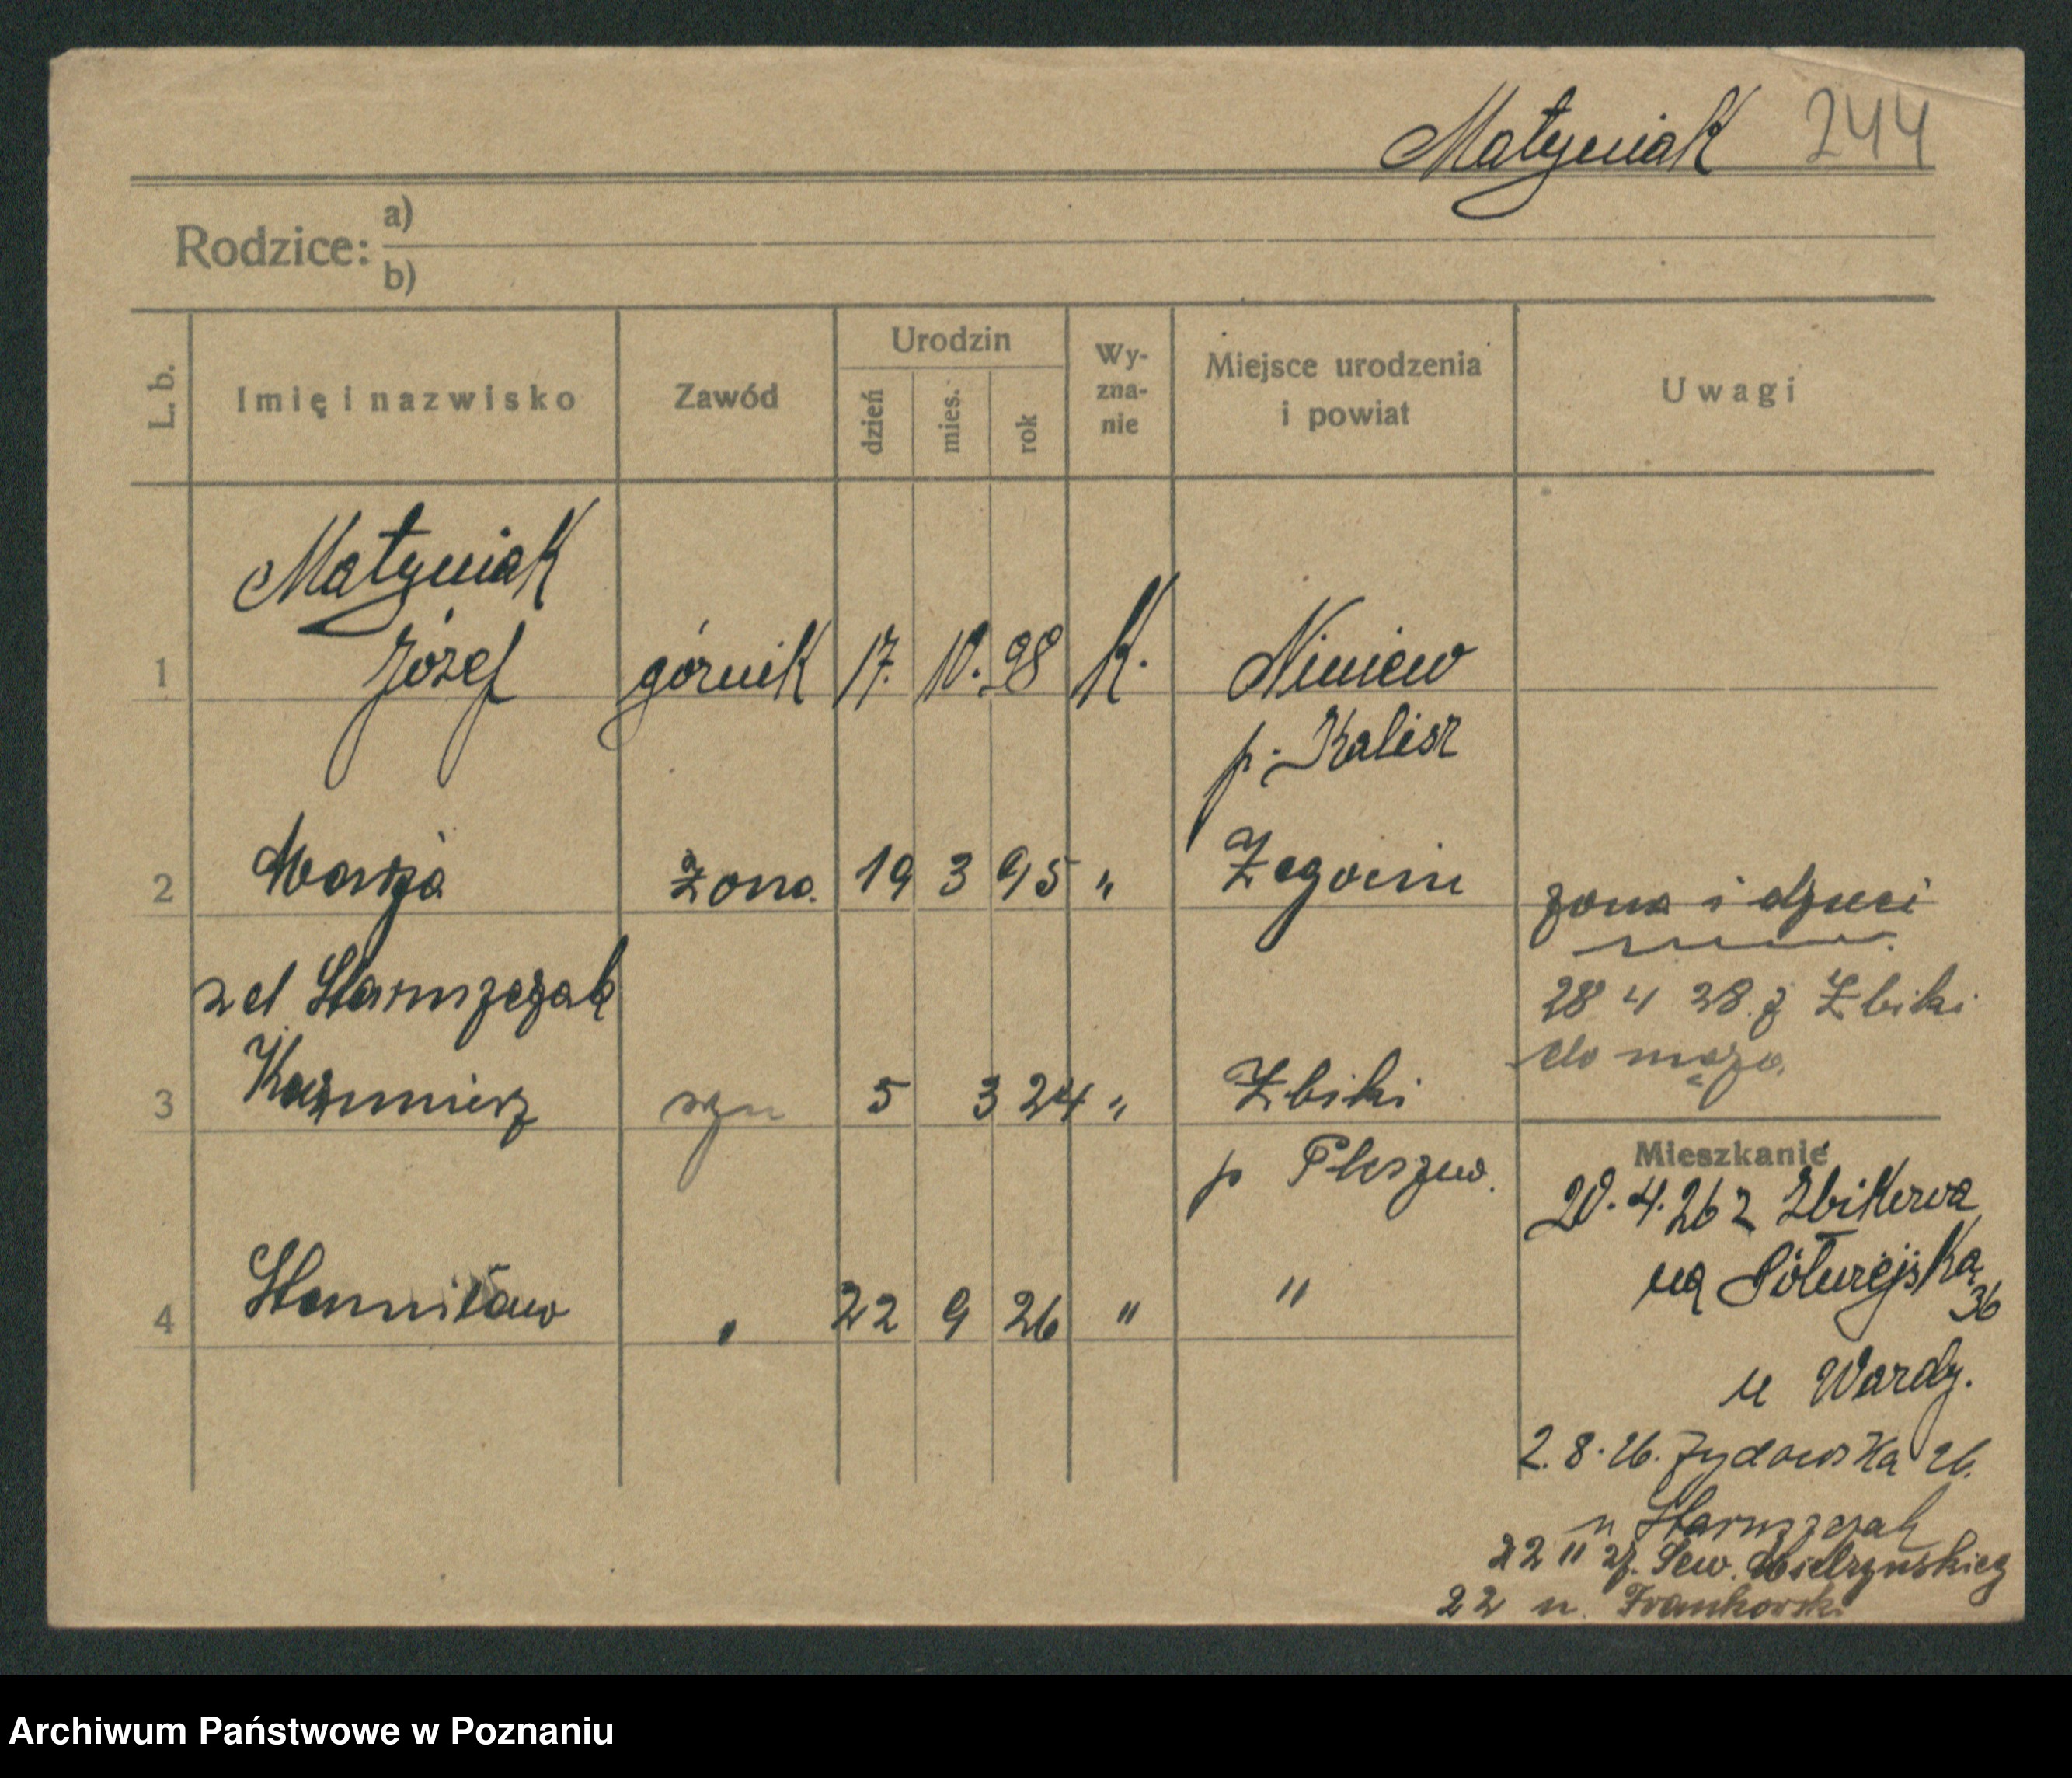 Matyniak 244
Rodzice: a)
b)
L. b.
Imię i nazwisko
Zawód
Urodzin
dzień
mies.
rok
Wy-
zna-
nie
Miejsce urodzenia
i powiat
Uwagi
Matyniak
1 Józef górnik 17. 10. 98 K. Niniew
p. Kalisz
2 Marja żona 19 3 95 " Żegocin
żona i dzieci
z d Starmszczak
28 4 28. z Żbiki
do męża
3 Kazimierz syn 5 3 24 " Żbiki
p Pleszew.
Mieszkanie
20. 4. 26 z Żbikerva
na
36
4 Stanisław " 22 9 26 " "
u Wardy.
2. 8. 26. Żydowska 26.
u
22 11 27. Sew. Mielżyńskieg
22 u. Frankowski
Archiwum Państwowe w Poznaniu